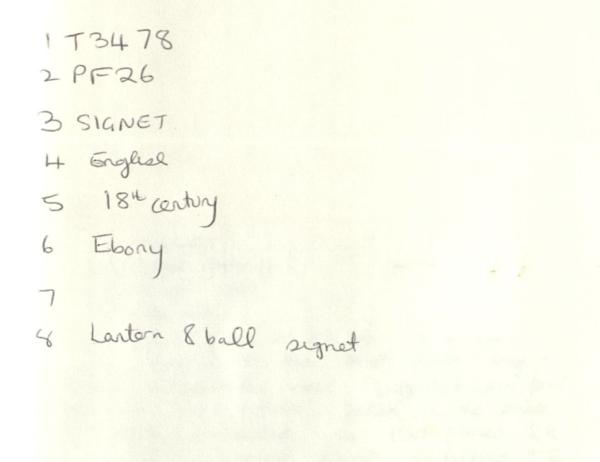 1 T3478
2 PF26
3 SIGNET
4 English
5 18th century
6 Ebony
7
8 Lantern 8 ball signet